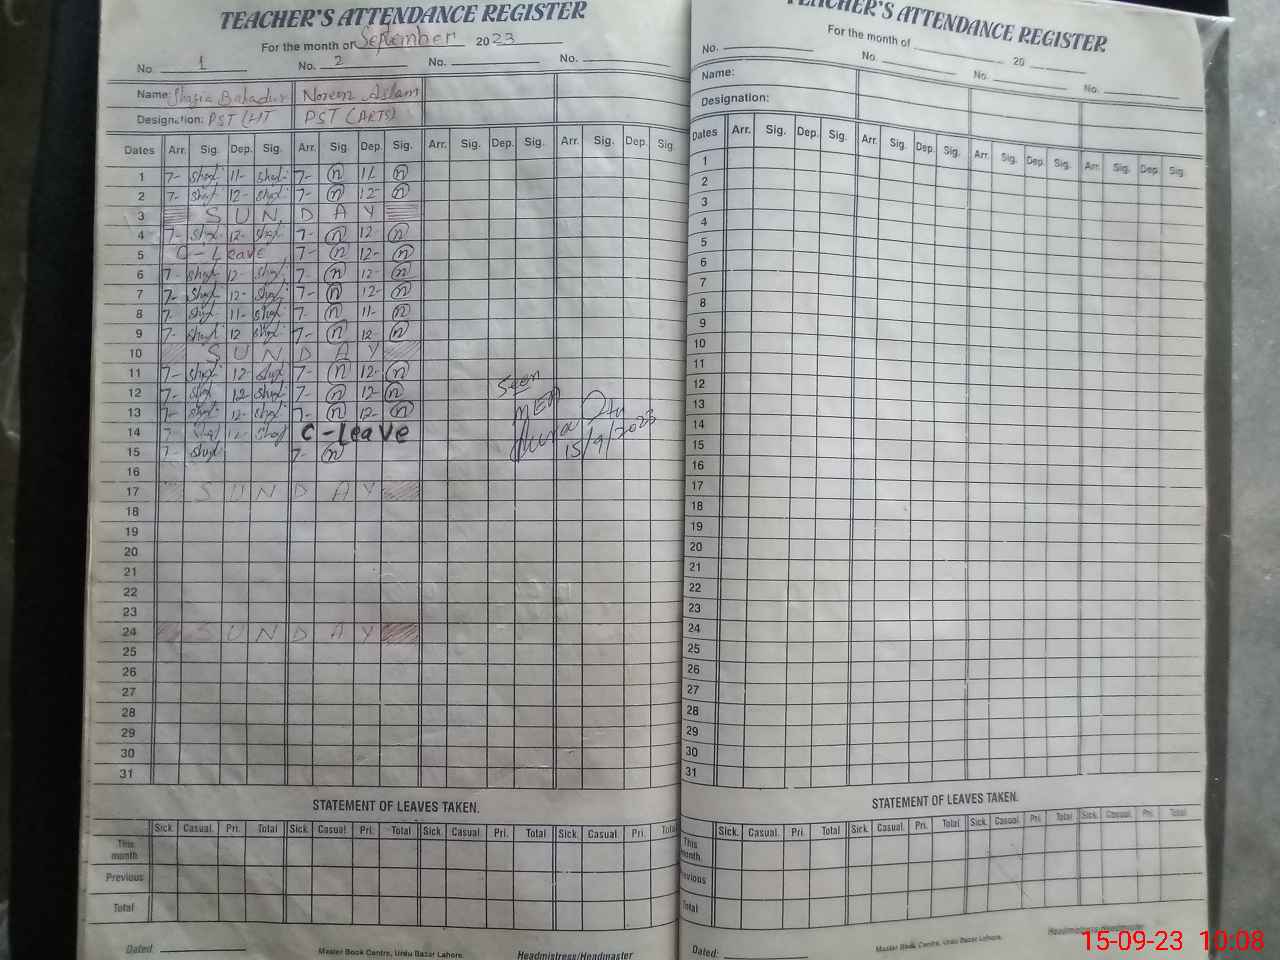 TEACHER'S ATTENDANCE REGISTER
For the month of September 2023
No. 1 No. 2 No. No.
Name: Shazia Bahadur Norem Aslam
Designation: PST (HT PST (ARTS)
Dates Arr. Sig. Dep. Sig. Arr. Sig. Dep. Sig. Arr. Sig. Dep. Sig. Arr. Sig. Dep. Sig.
1 7- 11- 7- n 11- n
2 7- 12- 7- n 12- n
3 SUNDAY
4 7- 12- 7- n 12 n
5 C-Leave 7- n 12- n
6 7- 12- 7- n 12- n
7 7- 12- 7- n 12- n
8 7- 11- 7- n 11- n
9 7- 12 7- n 12- n
10 SUNDAY
11 7- 12- 7- n 12- n
12 7- 12- 7- n 12- n
13 7- 12- 7- n 12- n
14 7- 12- C-Leave
15 7- 7- n
16
17 SUNDAY
18
19
20
21
22
23
24 SUNDAY
25
26
27
28
29
30
31
Seen
15/9/2023
STATEMENT OF LEAVES TAKEN.
Sick. Casual. Pri. Total Sick. Casual. Pri. Total Sick. Casual. Pri. Total Sick. Casual. Pri. Total
This month
Previous
Total
Dated. Master Book Centre, Urdu Bazar Lahore. Headmistress/Headmaster
TEACHER'S ATTENDANCE REGISTER
For the month of 20
No. No. No. No.
Name:
Designation:
Dates Arr. Sig. Dep. Sig. Arr. Sig. Dep. Sig. Arr. Sig. Dep. Sig. Arr. Sig. Dep. Sig.
1
2
3
4
5
6
7
8
9
10
11
12
13
14
15
16
17
18
19
20
21
22
23
24
25
26
27
28
29
30
31
STATEMENT OF LEAVES TAKEN.
Sick. Casual. Pri. Total Sick. Casual. Pri. Total Sick. Casual. Pri. Total Sick. Casual. Pri. Total
This month
Previous
Total
Dated: Master Book Centre, Urdu Bazar Lahore. Headmistress/Headmaster
15-09-23 10:08